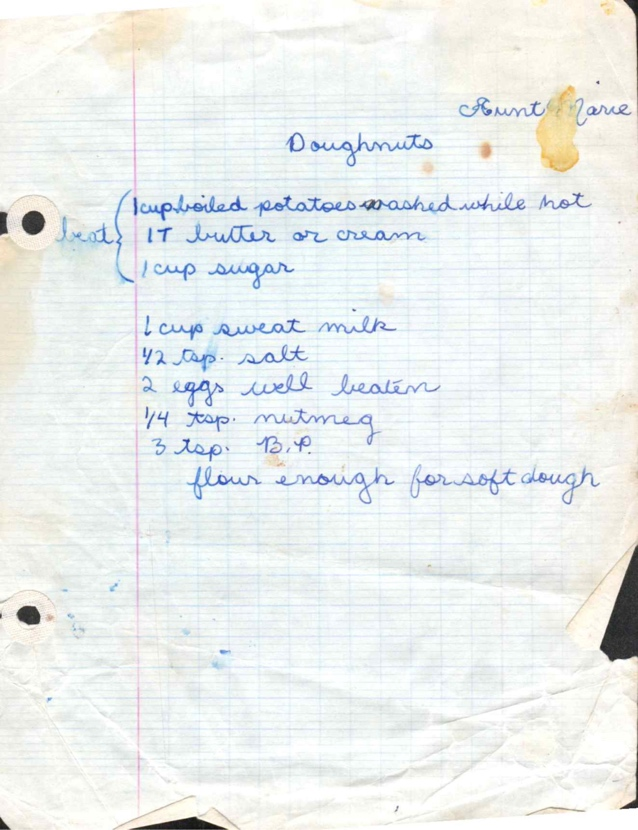 Aunt Marie
Doughnuts
1 cup boiled potatoes mashed while hot
beat { 1T butter or cream
1 cup sugar
1 cup sweat milk
1/2 tsp. salt
2 eggs well beaten
1/4 tsp. nutmeg
3 tsp. B.P.
flour enough for soft dough